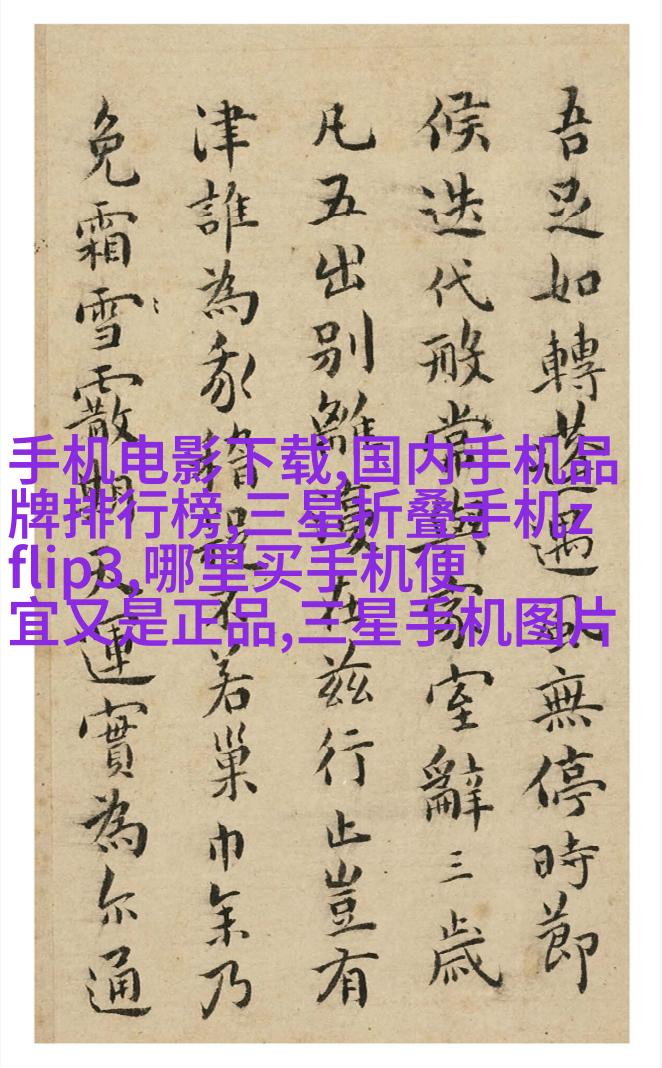 吾足如轉蓬遇風無停時節
候迭代般常與家室辭三歲
凡五出別離復在茲行止豈有
津誰為不若巢乃
免霜雪霰運實為尔通
手机电影下载,国内手机品
牌排行榜,三星折叠手机z
flip3,哪里买手机便
宜又是正品,三星手机图片